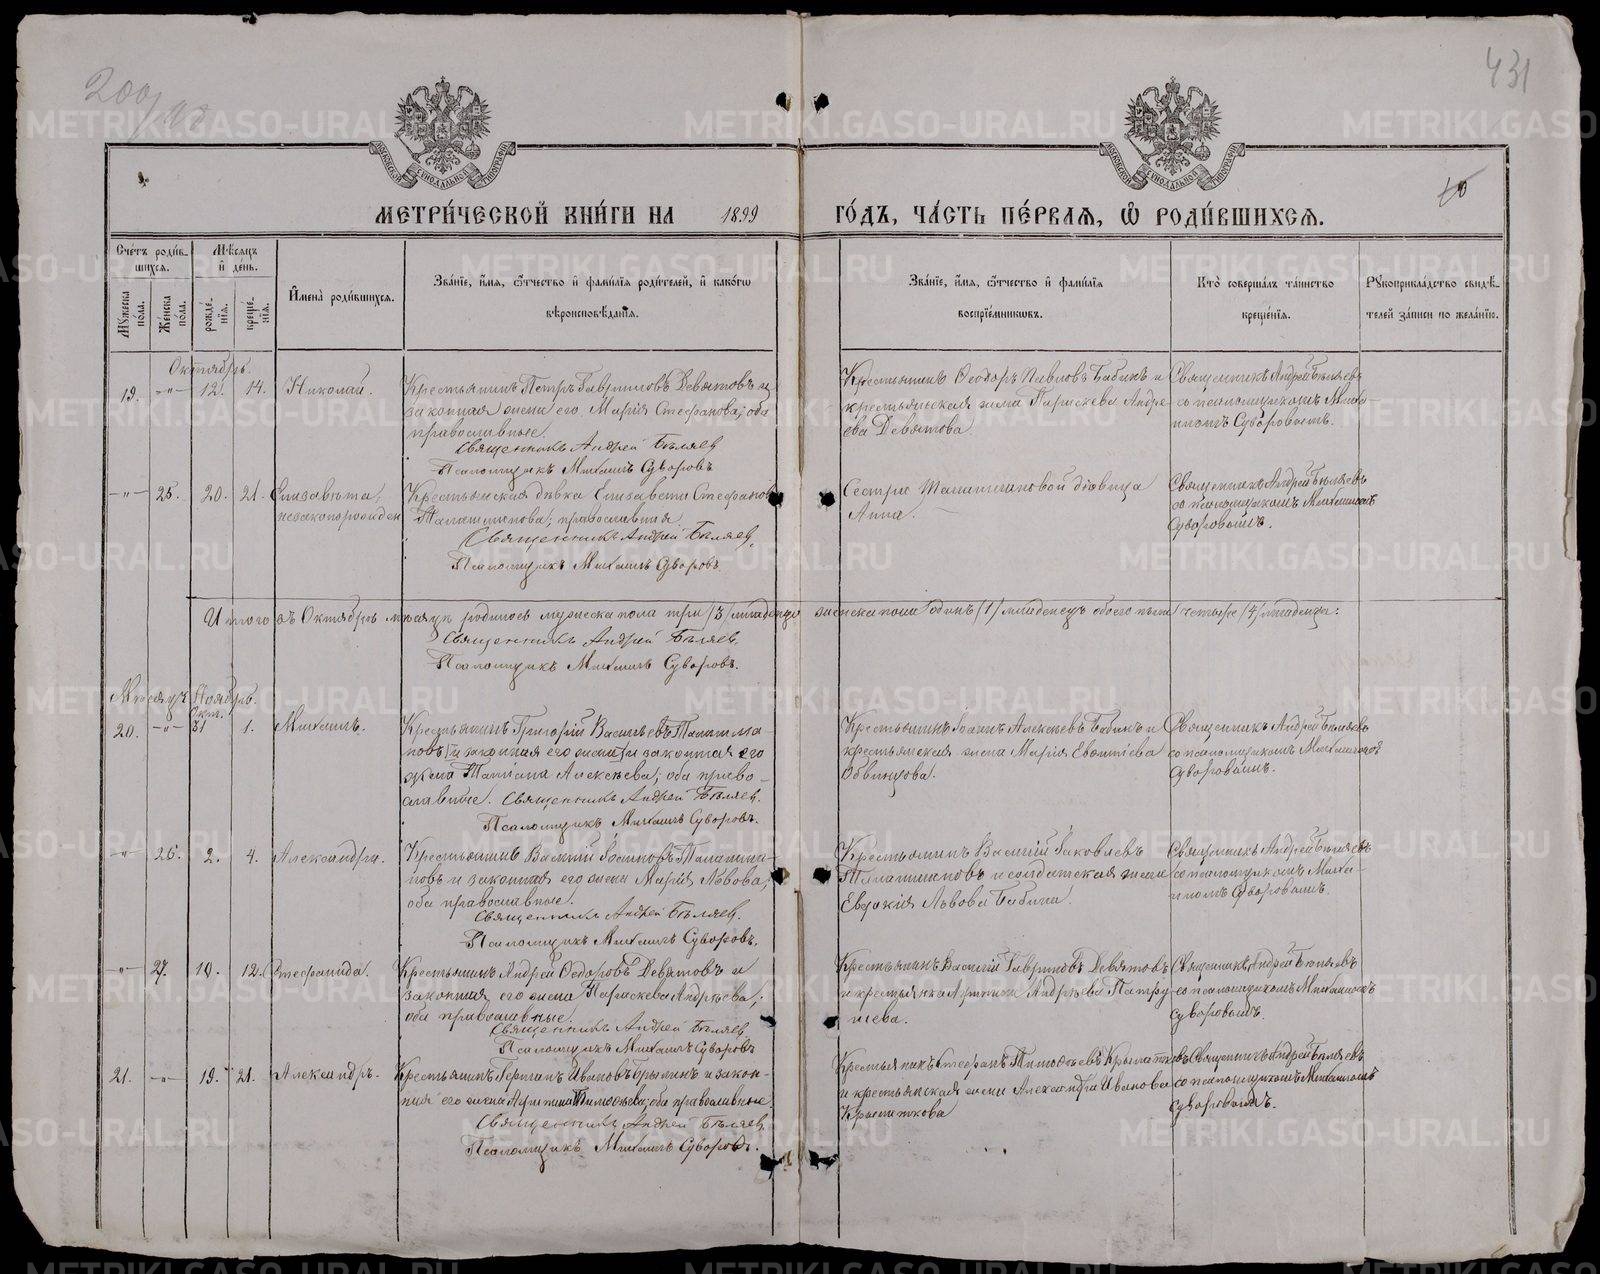 200/98
431
МЕТРИ́ЧЕСКОЙ КНИ́ГИ НА 1899 ГО́ДЪ, ЧА́СТЬ ПЕ́РВАЯ, Ѡ РОДИ́ВШИХСЯ.
10
Сче́тъ роди́вшихся.
Мѣ́сяцъ и҆ де́нь.
Му́жеска по́ла.
Же́нска по́ла.
рожде́нїя.
креще́нїя.
И҆мена̀ роди́вшихся.
Зва́нїе, и҆́мя, ѻ҆́тчество и҆ фами́лїя роди́телей, и҆ како́гѡ
вѣроисповѣ́данїя.
Зва́нїе, и҆́мя, ѻ҆́тчество и҆ фами́лїя
воспрїе́мниковъ.
Кто̀ соверша́лъ та́инство
креще́нїя.
Рукоприкла́дство свидѣ́-
телей за́писи по жела́нїю.
Октябрь.
19. -"- 12. 14. Николай.
Крестьянинъ Петръ Гавриловъ Девятовъ и
законная жена его Марія Стефанова; оба
православные.
Священникъ Андрей Бѣляев
Псаломщикъ Михаилъ Суворовъ
Крестьянинъ Ѳеодоръ Павловъ Бабинъ и
крестьянская жена Параскева Андре-
ева Девятова.
Священникъ Андрей Бѣляевъ
съ псаломщикомъ Миха-
иломъ Суворовымъ.
-"- 25. 20. 21. Елизавета,
незаконорожден
Крестьянская дѣвка Елизавета Стефанов
Талашманова; православная.
Священникъ Андрей Бѣляев.
Псаломщикъ Михаилъ Суворовъ.
Сестра Талашмановой дѣвица
Анна.
Священникъ Андрей Бѣляевъ
со псаломщикомъ Михаиломъ
Суворовымъ.
Итого въ Октябрѣ мѣсяцѣ родилось мужеска пола три /3/ младенца женска пола одинъ /1/ младенецъ обоего пола четыре /4/ младенца:
Священникъ Андрей Бѣляев.
Псаломщикъ Михаилъ Суворовъ.
Мѣсяцъ Ноябрь.
Окт.
20. -"- 31 1. Михаилъ.
Крестьянинъ Григорій Васильевъ Талашма-
новъ /и законная его жена/ и законная его
жена Татіана Алексѣева; оба право-
славные. Священникъ Андрей Бѣляев.
Псаломщикъ Михаилъ Суворовъ.
Крестьянинъ Іоаннъ Алексѣевъ Бабинъ и
крестьянская жена Марія Евфтіева
Обвинцова.
Священникъ Андрей Бѣляевъ
со псаломщикомъ Михаиломъ
Суворовымъ.
-"- 26. 2. 4. Александра.
Крестьянинъ Василій Іоанновъ Талашма-
новъ и законная его жена Марія Львова;
оба православные.
Священникъ Андрей Бѣляев.
Псаломщикъ Михаилъ Суворовъ.
Крестьянинъ Василій Іаковлевъ
Талашмановъ и солдатская жена
Евдокія Львова Бабина.
Священникъ Андрей Бѣляевъ
со псаломщикомъ Миха-
иломъ Суворовымъ.
-"- 27. 10. 12. Стефанида.
Крестьянинъ Андрей Ѳедоровъ Девятовъ и
законная его жена Параскева Андрѣева;
оба православные.
Священникъ Андрей Бѣляев
Псаломщикъ Михаилъ Суворовъ
Крестьянинъ Василій Гавриловъ Девятовъ
и крестьянка Андрѣева Патру-
шева.
Священникъ Андрей Бѣляевъ
со псаломщикомъ Михаиломъ
Суворовымъ.
21. -"- 19. 21. Александръ.
Крестьянинъ Германъ Ивановъ Брылинъ и закон-
ная его жена Агрипина Тимоѳѣева; оба православные
Священникъ Андрей Бѣляев.
Псаломщикъ Михаилъ Суворовъ.
Крестьянинъ Стефанъ Тимоѳѣевъ
и крестьянская жена Александра Иванова
Священникъ Андрей Бѣляевъ
со псаломщикомъ Михаиломъ
Суворовымъ.